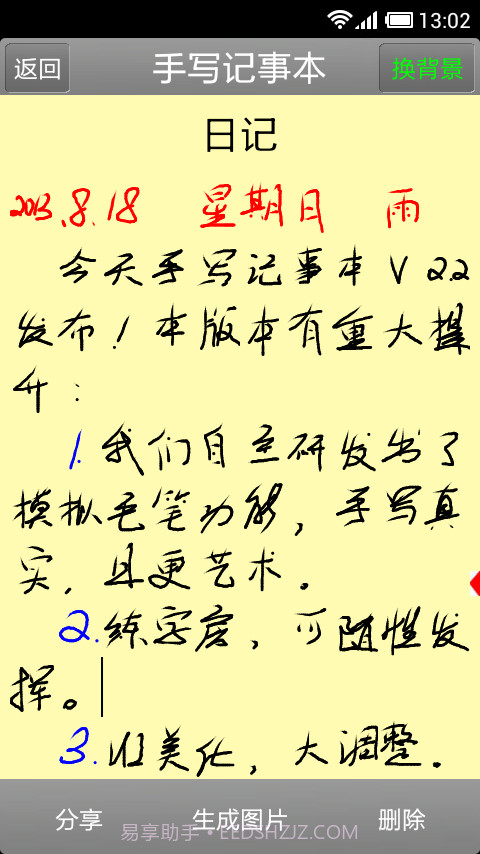 13:02
返回 手写记事本 换背景
日记
2013.8.18 星期日 雨
今天手写记事本V2.2
发布!本版本有重大提
升:
1.我们自主研发出了
模拟毛笔功能,手写真
实,且更艺术。
2.练字房,可随性发
挥。
3.UI美化,大调整。
分享 生成图片 删除
易享助手·EEDSHZJZ.COM